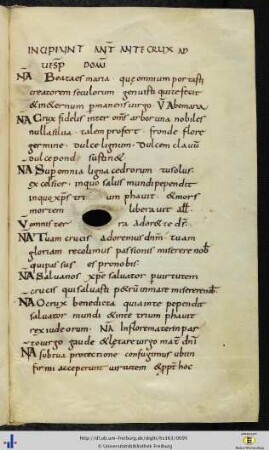 INCIPIVNT ANT ANTE CRUX AD
VESP DOM
NA Beata es maria que omnium portasti
creatorem seculorum genuisti qui te fecit
& in eternum permanens virgo V Abemara
NA Crux fidelis inter omnes arbor una nobiles
nulla silua talem profert fronde flore
germine dulce lignum dulcem clauu
dulce pond sustin&
NA Sup omnia ligna cedrorum tu solus
excelsior in quo salus mundi pependit
in quo xps tri um phauit & mors
mortem liberauit all
V omnis ter ra ador& te ds
NA Tuam crucis adoremus dnm tuam
gloriam recolimus passionis miserere nob
qui passus es pro nobis
NA Saluanos xpe saluator per uirtutem
crucis qui saluasti petrum in mare miserere nob
NA O crux benedicta quia in te pependit
saluator mundi & in te triumphauit
rex iudeorum NA Inflore mater in par
to uirgo gaude & letare uirgo mat dni
NA Sub tua protectione confugimus ubi in
firmi acceperunt uirtutem & ppt hoc
http://dl.ub.uni-freiburg.de/diglit/hs363/0059
© Universitätsbibliothek Freiburg